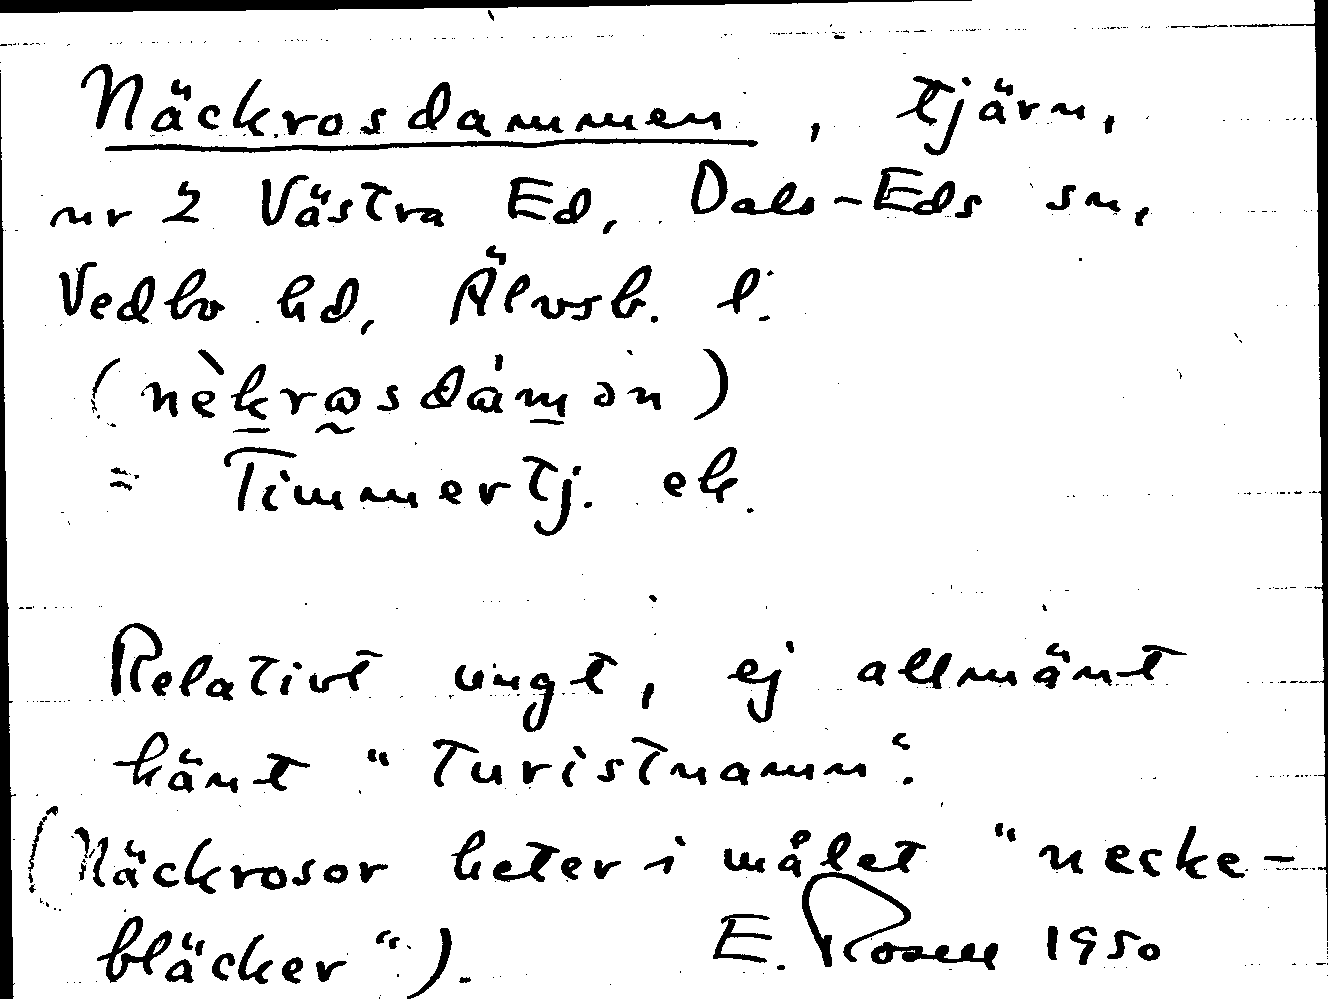 Näckrosdammen, tjärn,
nr 2 Västra Ed, Dals-Eds sn,
Vedbo hd, Älvsb. l.
(nèkrωsdám̱ən)
= Timmertj. ek.
Relativt ungt, ej allmänt
känt "turistnamn".
(Näckrosor heter i målet "necke-
bläcker").
E. Rosell 1950